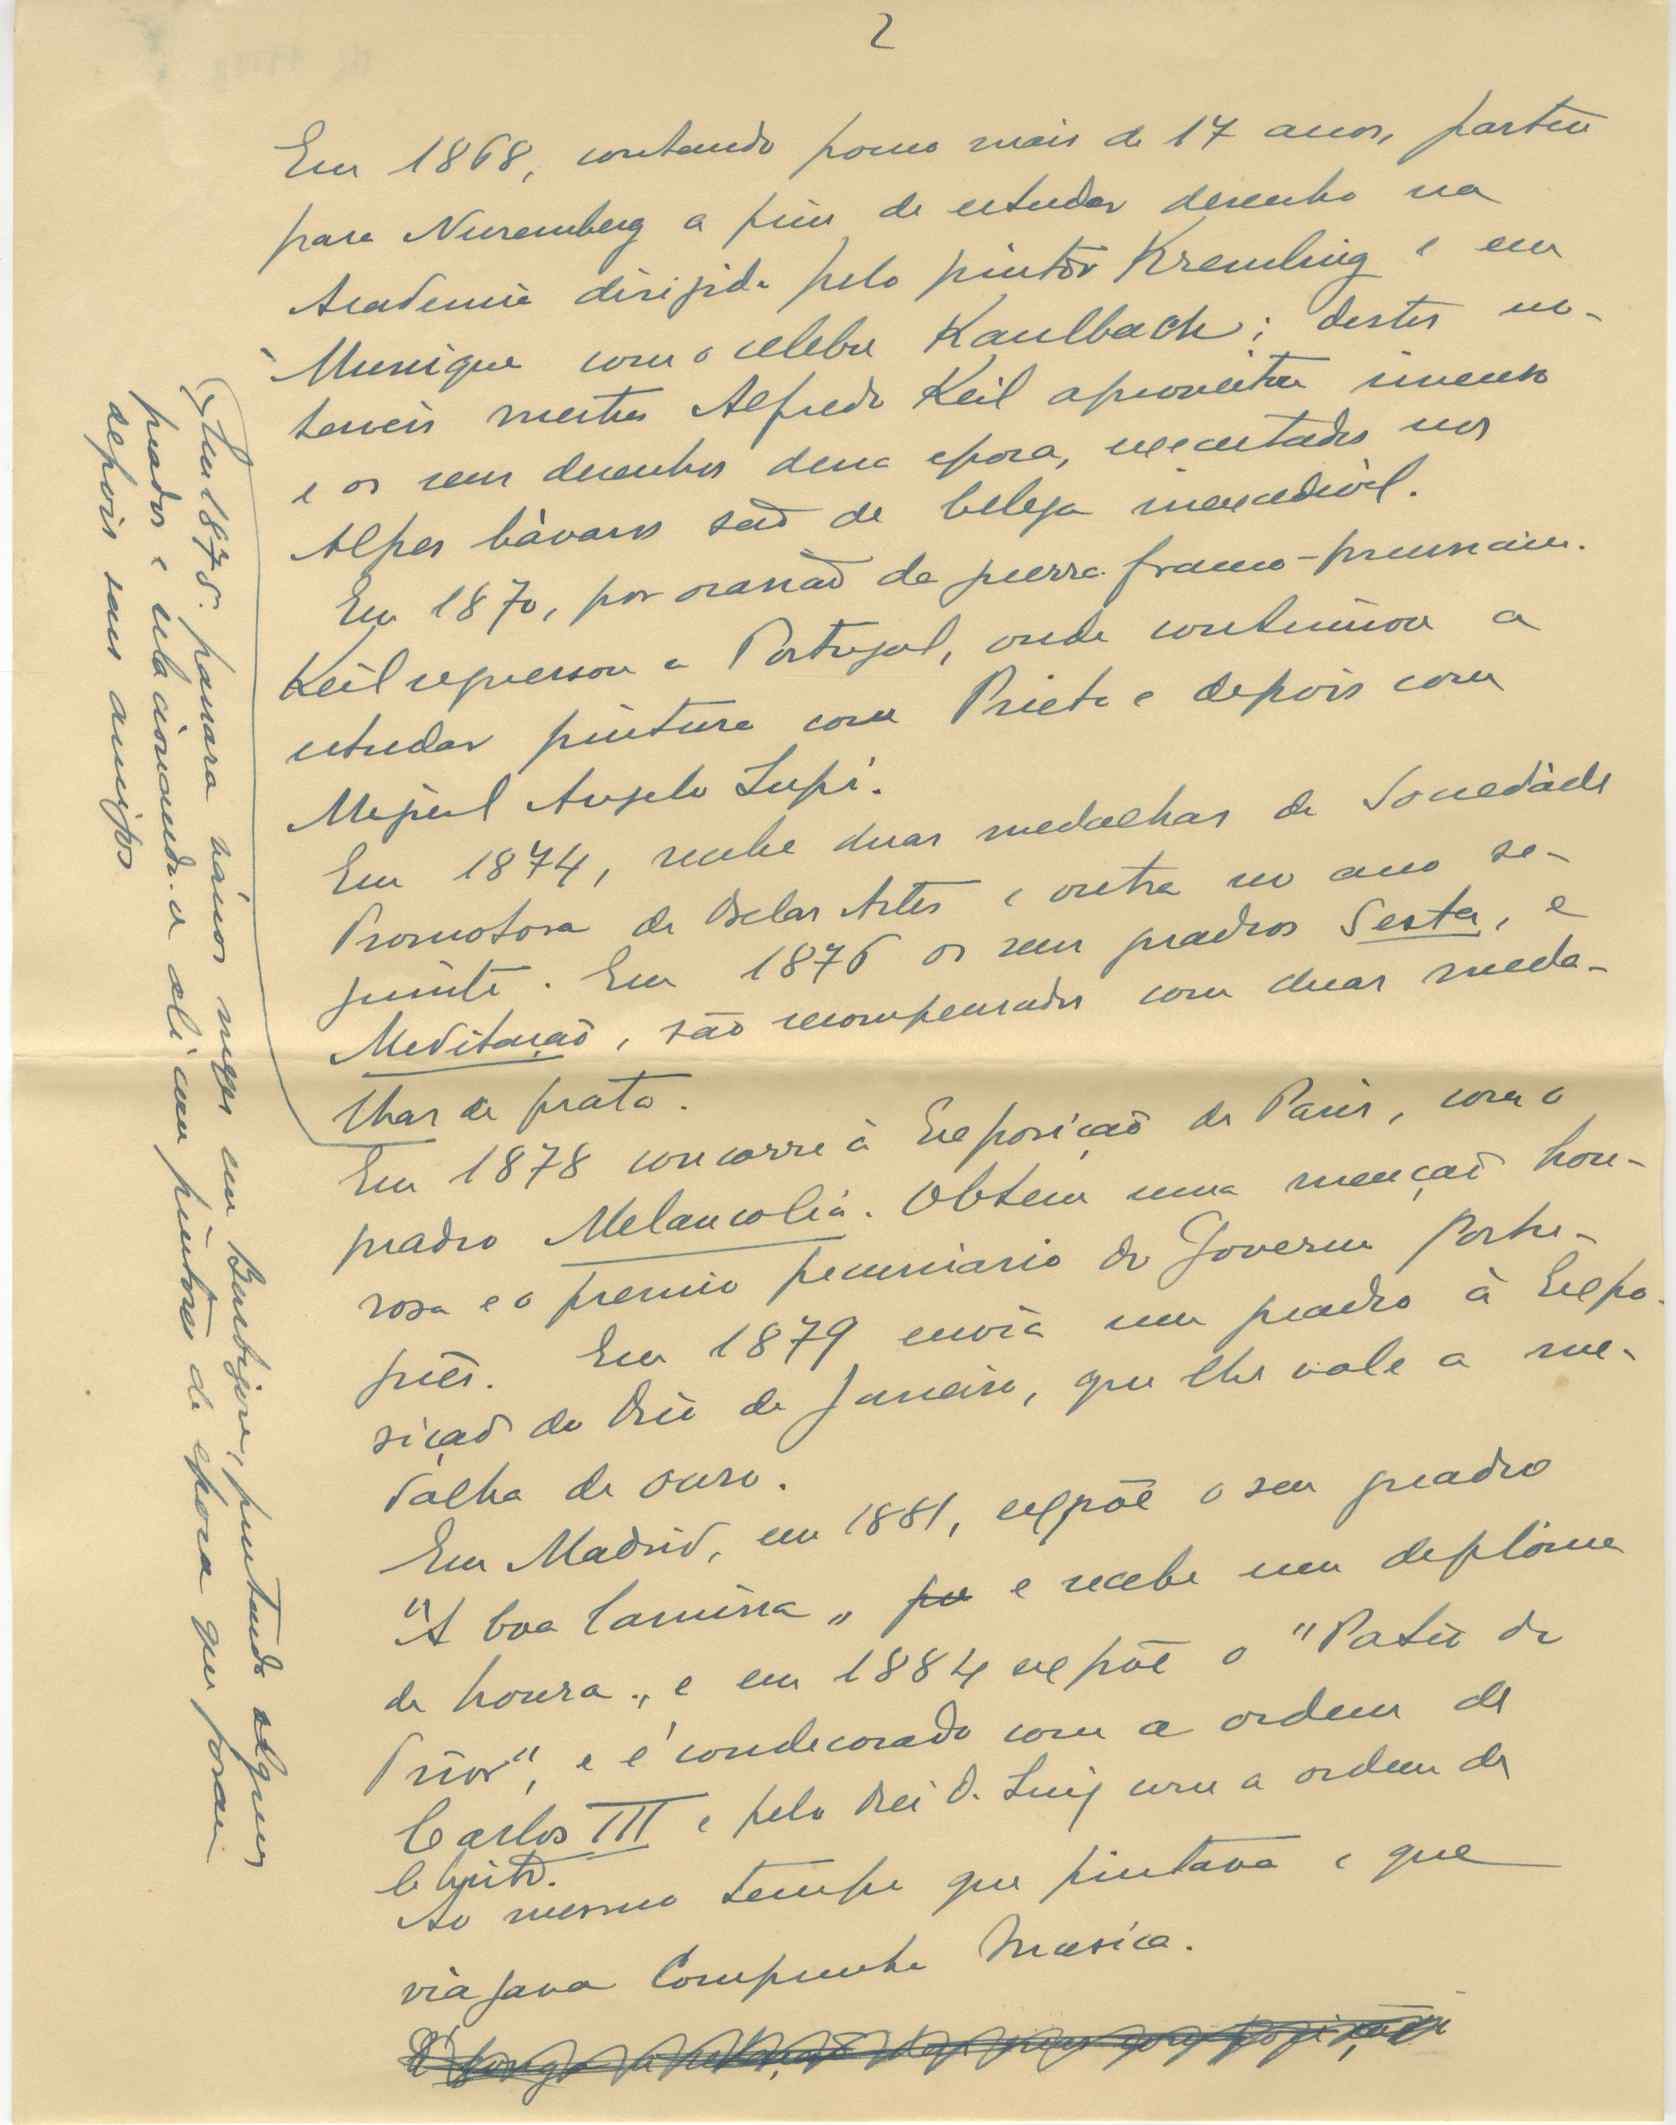 2
Em 1868, contando pouco mais de 17 anos, partiu
para Nuremberg a fim de estudar desenho na
Academia dirigida pelo pintor Kremling e em
Munique com o celebre Kaulbach; destes no-
taveis mestres Alfredo Keil aproveitou imenso
e os seus desenhos dessa epoca, executados nos
Alpes bávaros são de beleza inexcedivel.
Em 1870, por ocasião da guerra franco-prussiana.
Keil regressou a Portugal, onde continuou a
estudar pintura com Prieto e depois com
Miguel Angelo Lupi.
Em 1874, recebe duas medalhas da Sociedade
Promotora de Belas Artes e outra no ano se-
guinte. Em 1876 os seus quadros Sesta, e
Meditação, são recompensados com duas meda-
lhas de prata.
Em 1878 concorre á Exposição de Paris, com o
quadro Melancolia. Obtem uma menção hon-
rosa e o premio pecuniario do Governo Portu-
guês. Em 1879 envia um quadro á Expo-
sição do Rio de Janeiro, que lhe vale a me-
dalha de ouro.
Em Madrid, em 1881, expõe o seu quadro
"A boa Camisa" e recebe um diplôma
de honra, e em 1884 expõe o "Patio do
Prior", e é condecorado com a ordem de
Carlos III e pelo Rei D. Luiz com a ordem de
Christo.
Ao mesmo tempo que pintava e que
viajava Compunha Musica.
(Em 1875. passara vários meses em Barbizon, pintando alguns
quadros e relacionando-a ali com pintores da epoca que foram
depois seus amigos